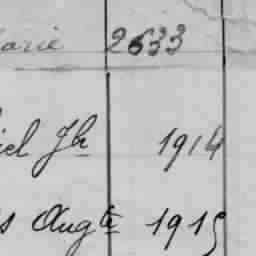 arie 2633
iel Jh 1914
s Augte 1915